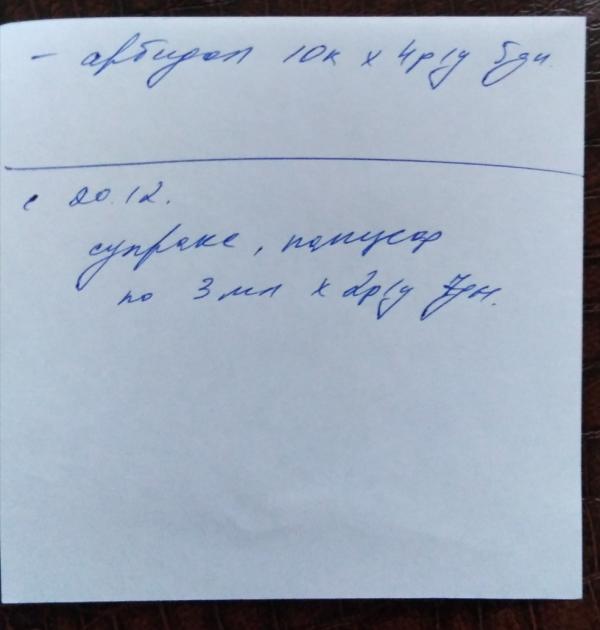 - арбидол 10к х 4р/д 5дн.
с 20.12.
супракс, панцеф
по 3 мл х 2р/д 7дн.